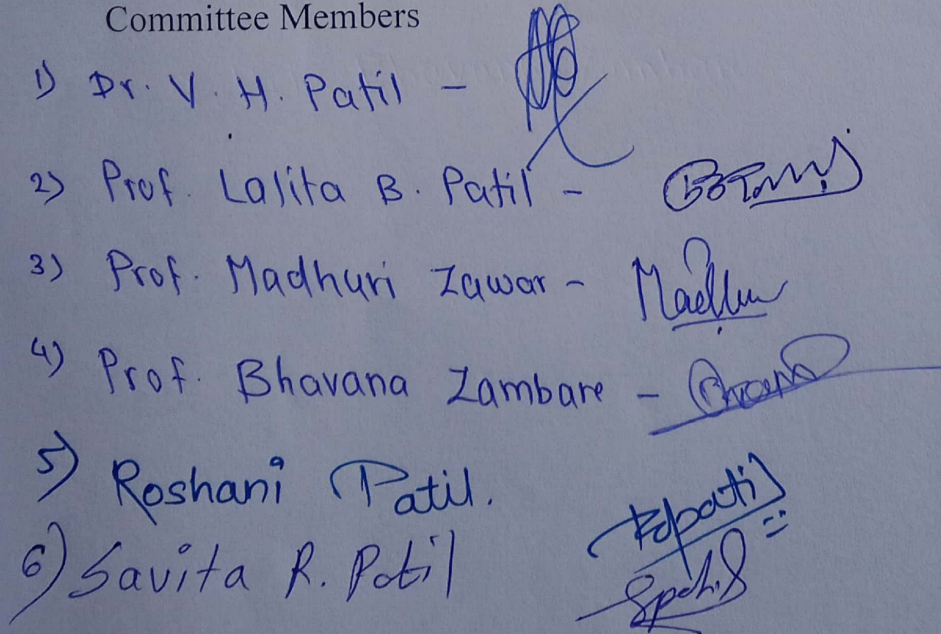 Committee Members
1) Dr. V. H. Patil -
2) Prof. Lalita B. Patil -
3) Prof. Madhuri Zawar - Madhu
4) Prof. Bhavana Zambare -
5) Roshani Patil.
Rdpatil
6) Savita R. Patil
Spatil